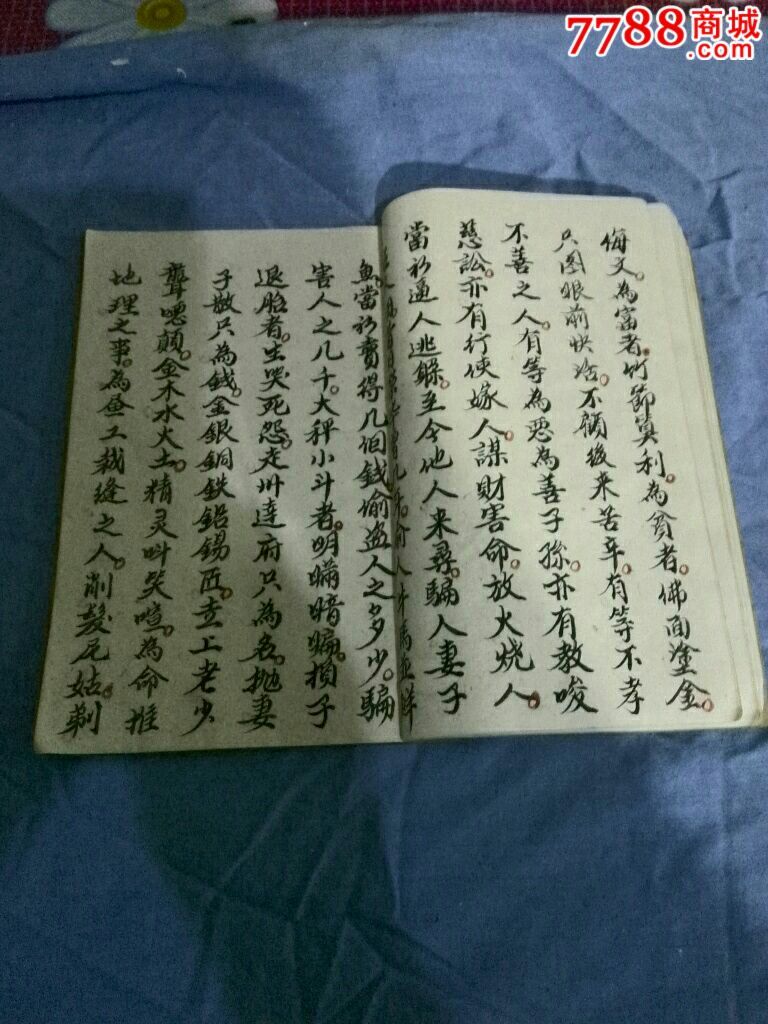 7788商城
.com
侮文。為富者。竹節異利。為貧者。佛面塗金。
只图眼前快活。不顧後來苦辛。有等不孝
不善之人。有等為惡為善子孫。亦有教唆
慈訟。亦有行使嫁人。謀財害命。放火燒人。
當初逼人逃躲。至今他人來尋。騙人妻子
魚。當初賣得几個錢。偷盗人之多少。騙
害人之几千。大秤小斗者。明瞞暗騙。損子
退胎者。生哭死怨。走州達府只為名。抛妻
子散只為錢。金銀銅鉄鋁錫匠。壹上老少
聾嗯顛。金木水火土。精灵叫笑喧。為命推
地理之事。為昼工裁縫之人。削髮尼姑。剃